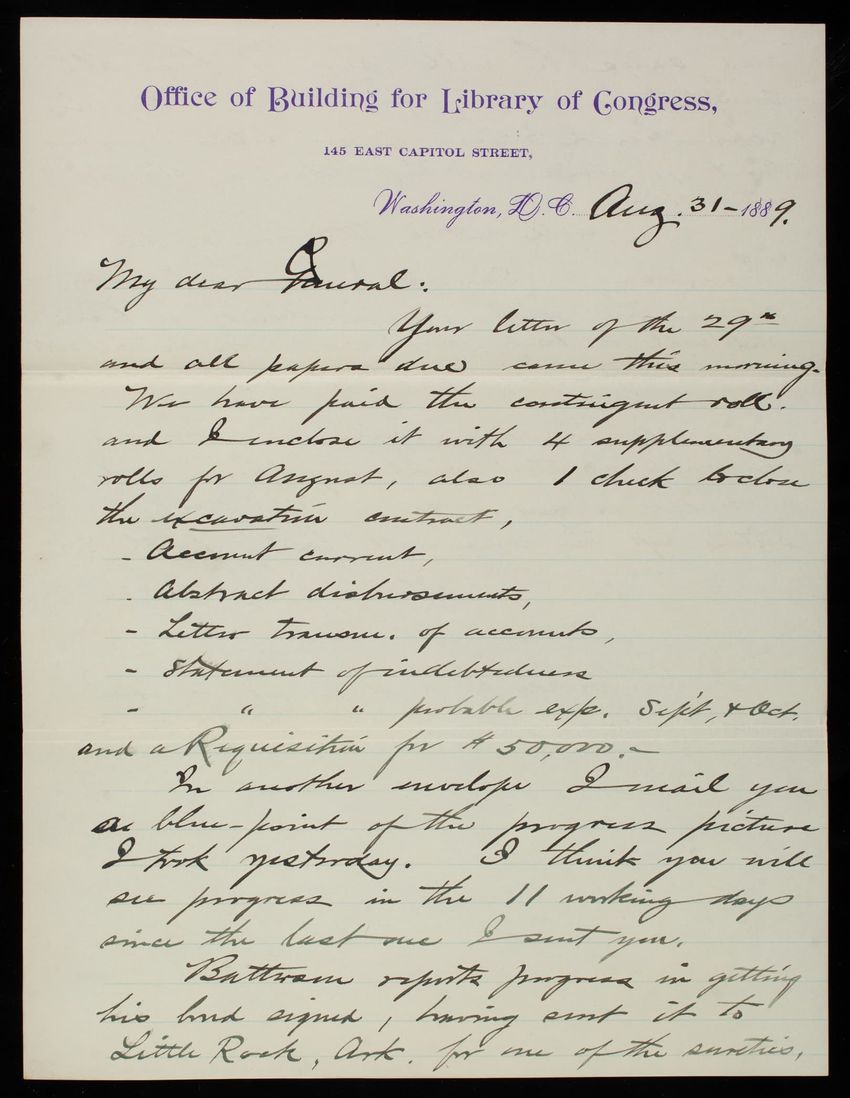 Office of Building for Library of Congress,
145 EAST CAPITOL STREET,
Washington, D.C. Aug. 31 - 1889.
My dear General:
Your letter of the 29th
and all papers due came this morning.
We have paid the contingent roll.
and I enclose it with 4 supplementary
rolls for August, also 1 check to close
the excavation contract,
- Account current,
- Abstract disbursements,
- Letter transm. of accounts,
- Statement of indebtedness
- " " probable exp. Sept, & Oct.
and a Requisition for $50,000.-
In another envelope I mail you
a blue-print of the progress picture
I took yesterday. I think you will
see progress in the 11 working days
since the last one I sent you.
Batterson reports progress in getting
his bond signed, having sent it to
Little Rock, Ark. for one of the sureties,